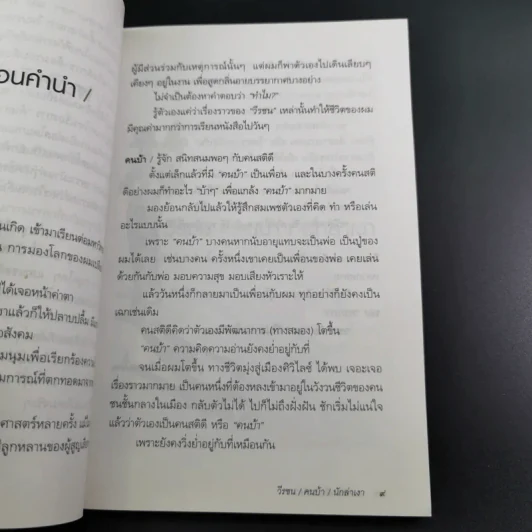 อนคำนำ /
นเกิด เข้ามาเรียนต่อมหาวิ
น การมองโลกของผมเปลี่ย
ได้เจอหน้าค่าตา
าแล้วก็ให้ปลาบปลื้ม
อสังคม
มนุมเพื่อเรียกร้องความ
มการณ์ที่ตกทอดมาจาก
ศาสตร์หลายครั้ง
ปีลูกหลานของผู้สูญเสีย
ผู้มีส่วนร่วมกับเหตุการณ์นั้นๆ แต่ผมก็พาตัวเองไปเดินเตียบๆ
เคียงๆ อยู่ในงาน เพื่อสูดกลิ่นอายบรรยากาศบางอย่าง
ไม่จำเป็นต้องหาคำตอบว่า "ทำไม?"
รู้ตัวเองแค่ว่าเรื่องราวของ "วีรชน" เหล่านั้นทำให้ชีวิตของผม
มีคุณค่ามากกว่าการเรียนหนังสือไปวันๆ
คนบ้า / รู้จัก สนิทสนมพอๆ กับคนสติดี
ตั้งแต่เล็กแล้วที่มี "คนบ้า" เป็นเพื่อน และในบางครั้งคนสติ
ดีอย่างผมก็ทำอะไร "บ้าๆ" เพื่อแกล้ง "คนบ้า" มากมาย
มองย้อนกลับไปแล้วให้รู้สึกสมเพชตัวเองที่คิด ทำ หรือเล่น
อะไรแบบนั้น
เพราะ "คนบ้า" บางคนหากนับอายุแทบจะเป็นพ่อ เป็นปู่ของ
ผมได้เลย เช่นบางคน ครั้งหนึ่งเขาเคยเป็นเพื่อนของพ่อ เคยเล่น
ด้วยกันกับพ่อ มอบความสุข มอบเสียงหัวเราะให้
แล้ววันหนึ่งก็กลายมาเป็นเพื่อนกับผม ทุกอย่างก็ยังคงเป็น
เฉกเช่นเดิม
คนสติดีคิดว่าตัวเองมีพัฒนาการ (ทางสมอง) โตขึ้น
"คนบ้า" ความคิดความอ่านยังคงย่ำอยู่กับที่
จนเมื่อผมโตขึ้น ทางชีวิตมุ่งสู่เมืองศิวิไลซ์ ได้พบ เจอะเจอ
เรื่องราวมากมาย เป็นคนหนึ่งที่ต้องหลงเข้ามาอยู่ในวังวนชีวิตของคน
ชนชั้นกลางในเมือง กลับตัวไม่ได้ ไปก็ไม่ถึงฝั่งฝัน ชักเริ่มไม่แน่ใจ
แล้วว่าตัวเองเป็นคนสติดี หรือ "คนบ้า"
เพราะยังคงวิ่งย่ำอยู่กับที่เหมือนกัน
วีรชน / คนบ้า / นักล่าเงา ๙